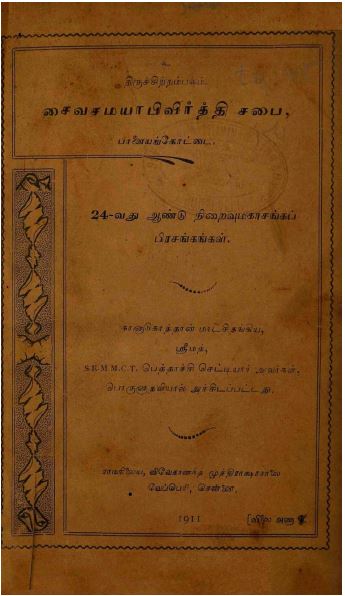 உ
திருச்சிற்றம்பலம்.
சைவசமயாபிவிர்த்தி சபை,
பாளையங்கோட்டை.
24-வது ஆண்டு நிறைவுமகாசங்கப்
பிரசங்கங்கள்.
கானாடுகாத்தான் மாட்சிதங்கிய,
ஸ்ரீமத்,
S.R.M.M.C.T. பெத்தாச்சி செட்டியார் அவர்கள்.
பொருளுதவியால் அச்சிடப்பட்டது.
விவேகானந்த முத்திராக்ஷரசாலை
வேப்பேரி, சென்னை.
1911
[விலை அணா